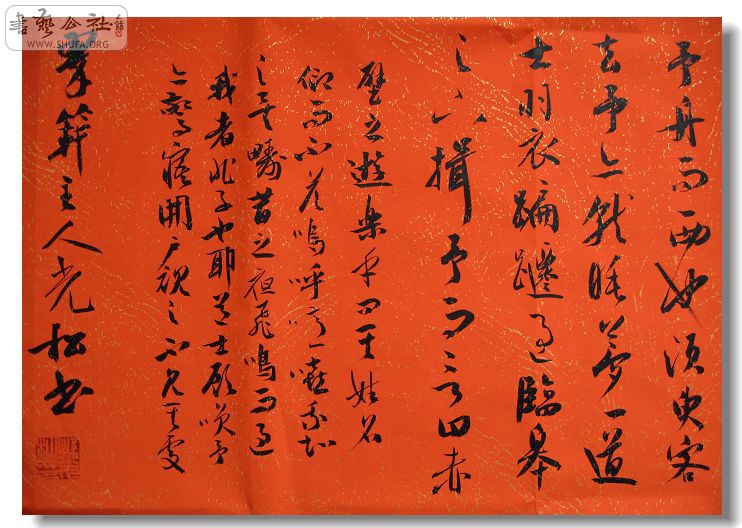 書藝公社
WWW.SHUFA.ORG
予舟而西也須臾客
去予亦就睡夢一道
士羽衣蹁躚過臨皋
之下揖予而言曰赤
壁之遊樂乎問其姓名
俯而不答嗚呼噫嘻我知
之矣疇昔之夜飛鳴而過
我者非子也耶道士顧笑予
亦驚寤開戶視之不見其處
主人光松书